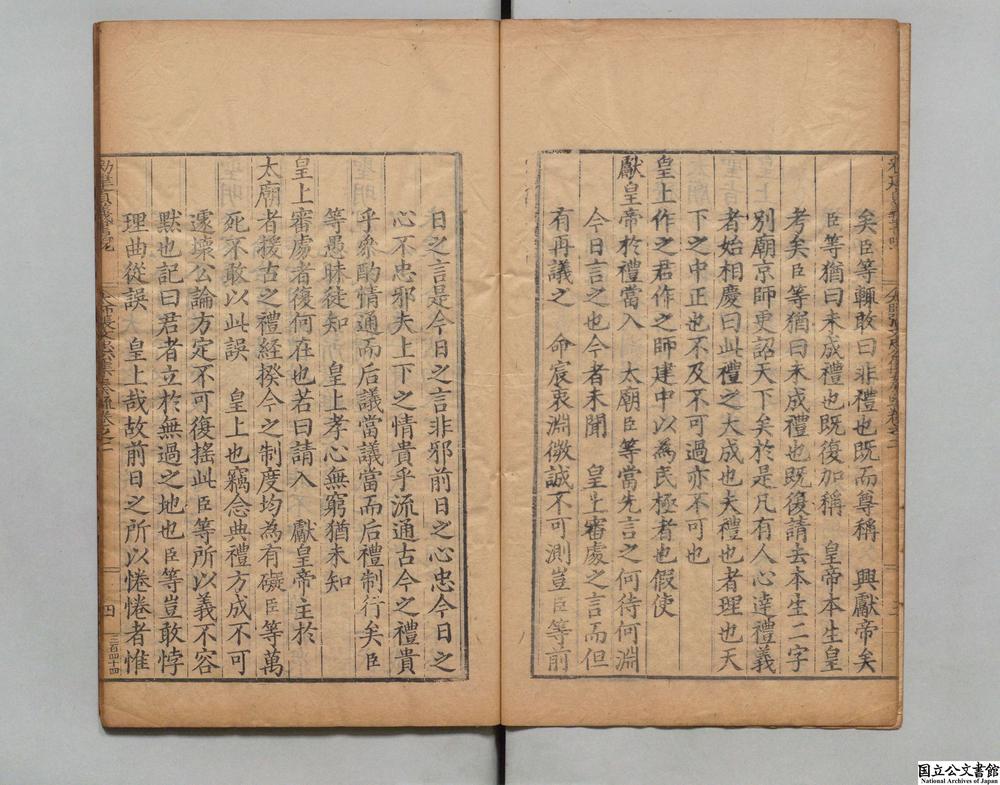 矣臣等輙敢曰非禮也既而尊稱　興獻帝矣
臣等猶曰未成禮也既復加稱　皇帝本生皇
考矣臣等猶曰未成禮也既復請去本生二字
別廟京師更詔天下矣於是凡有人心達禮義
者始相慶曰此禮之大成也夫禮也者理也天
下之中正也不及不可過亦不可也
皇上作之君作之師建中以為民極者也假使
獻皇帝於禮當入　太廟臣等當先言之何待何淵
今日言之也今者未聞　皇上審處之言而但
有再議之　命宸衷淵微誠不可測豈臣等前
日之言是今日之言非邪前日之心忠今日之
心不忠邪夫上下之情貴乎流通古今之禮貴
乎參酌情通而后議當議當而后禮制行矣臣
等愚昧徒知　皇上孝心無窮猶未知
皇上審處者復何在也若曰請入　獻皇帝主於
太廟者援古之禮經揆今之制度均為有礙臣等萬
死不敢以此誤　皇上也竊念典禮方成不可
遽壞公論方定不可復搖此臣等所以義不容
默也記曰君者立於無過之地也臣等豈敢悖
理曲從誤　皇上哉故前日之所以惓惓者惟
四
三百四十四
国立公文書館
National Archives of Japan